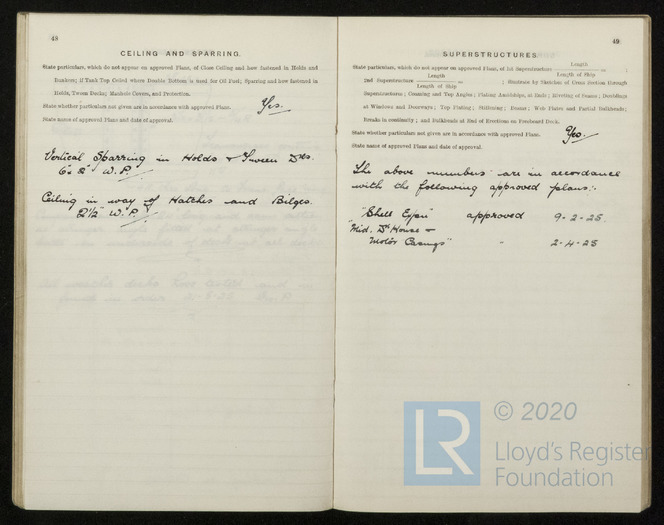 48
CEILING AND SPARRING.
State particulars, which do not appear on approved Plans, of Close Ceiling and how fastened in Holds and
Bunkers; if Tank Top Ceiled where Double Bottom is used for Oil Fuel; Sparring and how fastened in
Holds, Tween Decks; Manhole Covers, and Protection.
State whether particulars not given are in accordance with approved Plans. Yes.
State names of approved Plans and date of approval.
Vertical Sparring in Holds & Tween Dks.
6" 2" W.P.
Ceiling in way of Hatches and Bilges.
2½" W.P.
49
SUPERSTRUCTURES
State particulars, which do not appear on approved Plans, of 1st Superstructure Length / Length of Ship = ;
2nd Superstructure Length / Length of Ship = ; Illustrate by Sketches of Cross Section through
Superstructures; Coaming and Top Angles; Plating Amidships, at Ends; Riveting of Seams; Doublings
at Windows and Doorways; Top Plating; Stiffening; Beams; Web Plates and Partial Bulkheads;
Breaks in continuity; and Bulkheads at End of Erections on Freeboard Deck.
State whether particulars not given are in accordance with approved Plans. Yes.
State names of approved Plans and date of approval.
The above numbers are in accordance
with the following approved plans:-
"Shell Expn" approved 9-2-25.
"Mid. Dk House &
Motor Casings" " 2-4-25
© 2020
LR
Lloyd's Register
Foundation